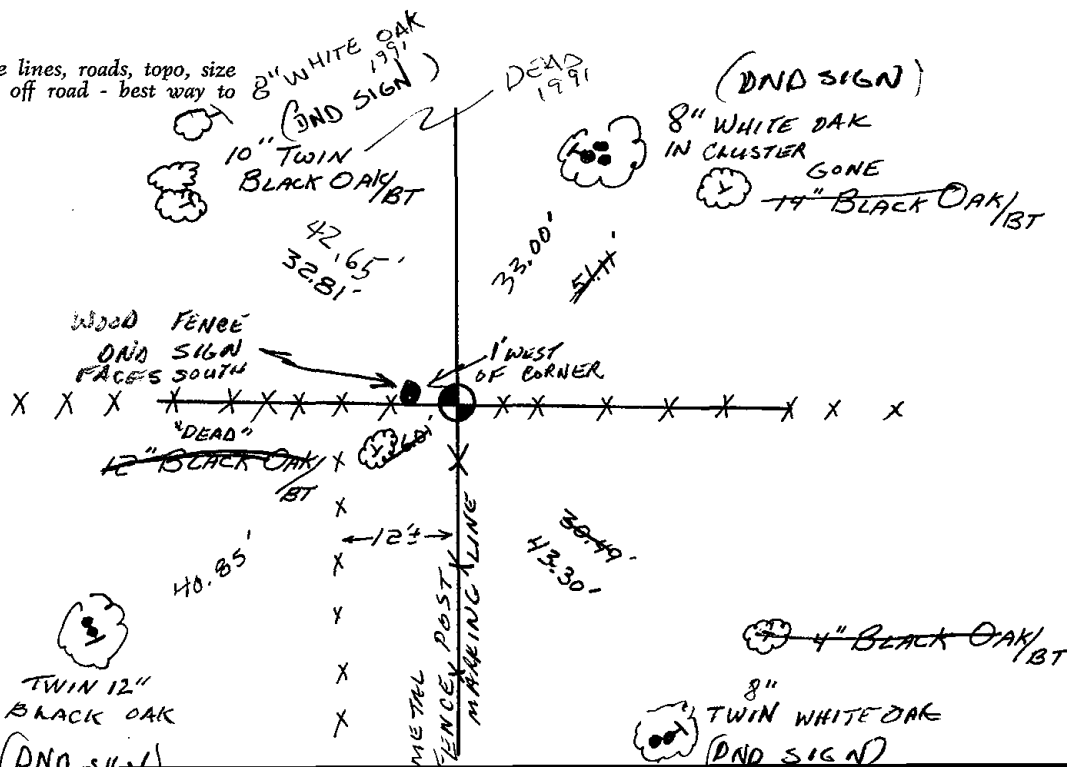 e lines, roads, topo, size
off road - best way to
8" WHITE OAK
1991
(DND SIGN)
DEAD
1991
10" TWIN
BLACK OAK/BT
(DND SIGN)
8" WHITE OAK
IN CLUSTER
GONE
14" BLACK OAK/BT
42.65'
32.81'
33.00'
51.11'
WOOD FENCE
DND SIGN
FACES SOUTH
1' WEST
OF CORNER
"DEAD"
12" BLACK OAK/BT
12'±
40.85'
30.49'
43.30'
METAL
FENCE POST
MARKING LINE
4" BLACK OAK/BT
TWIN 12"
BLACK OAK
(DND SIGN)
8"
TWIN WHITE OAK
(DND SIGN)